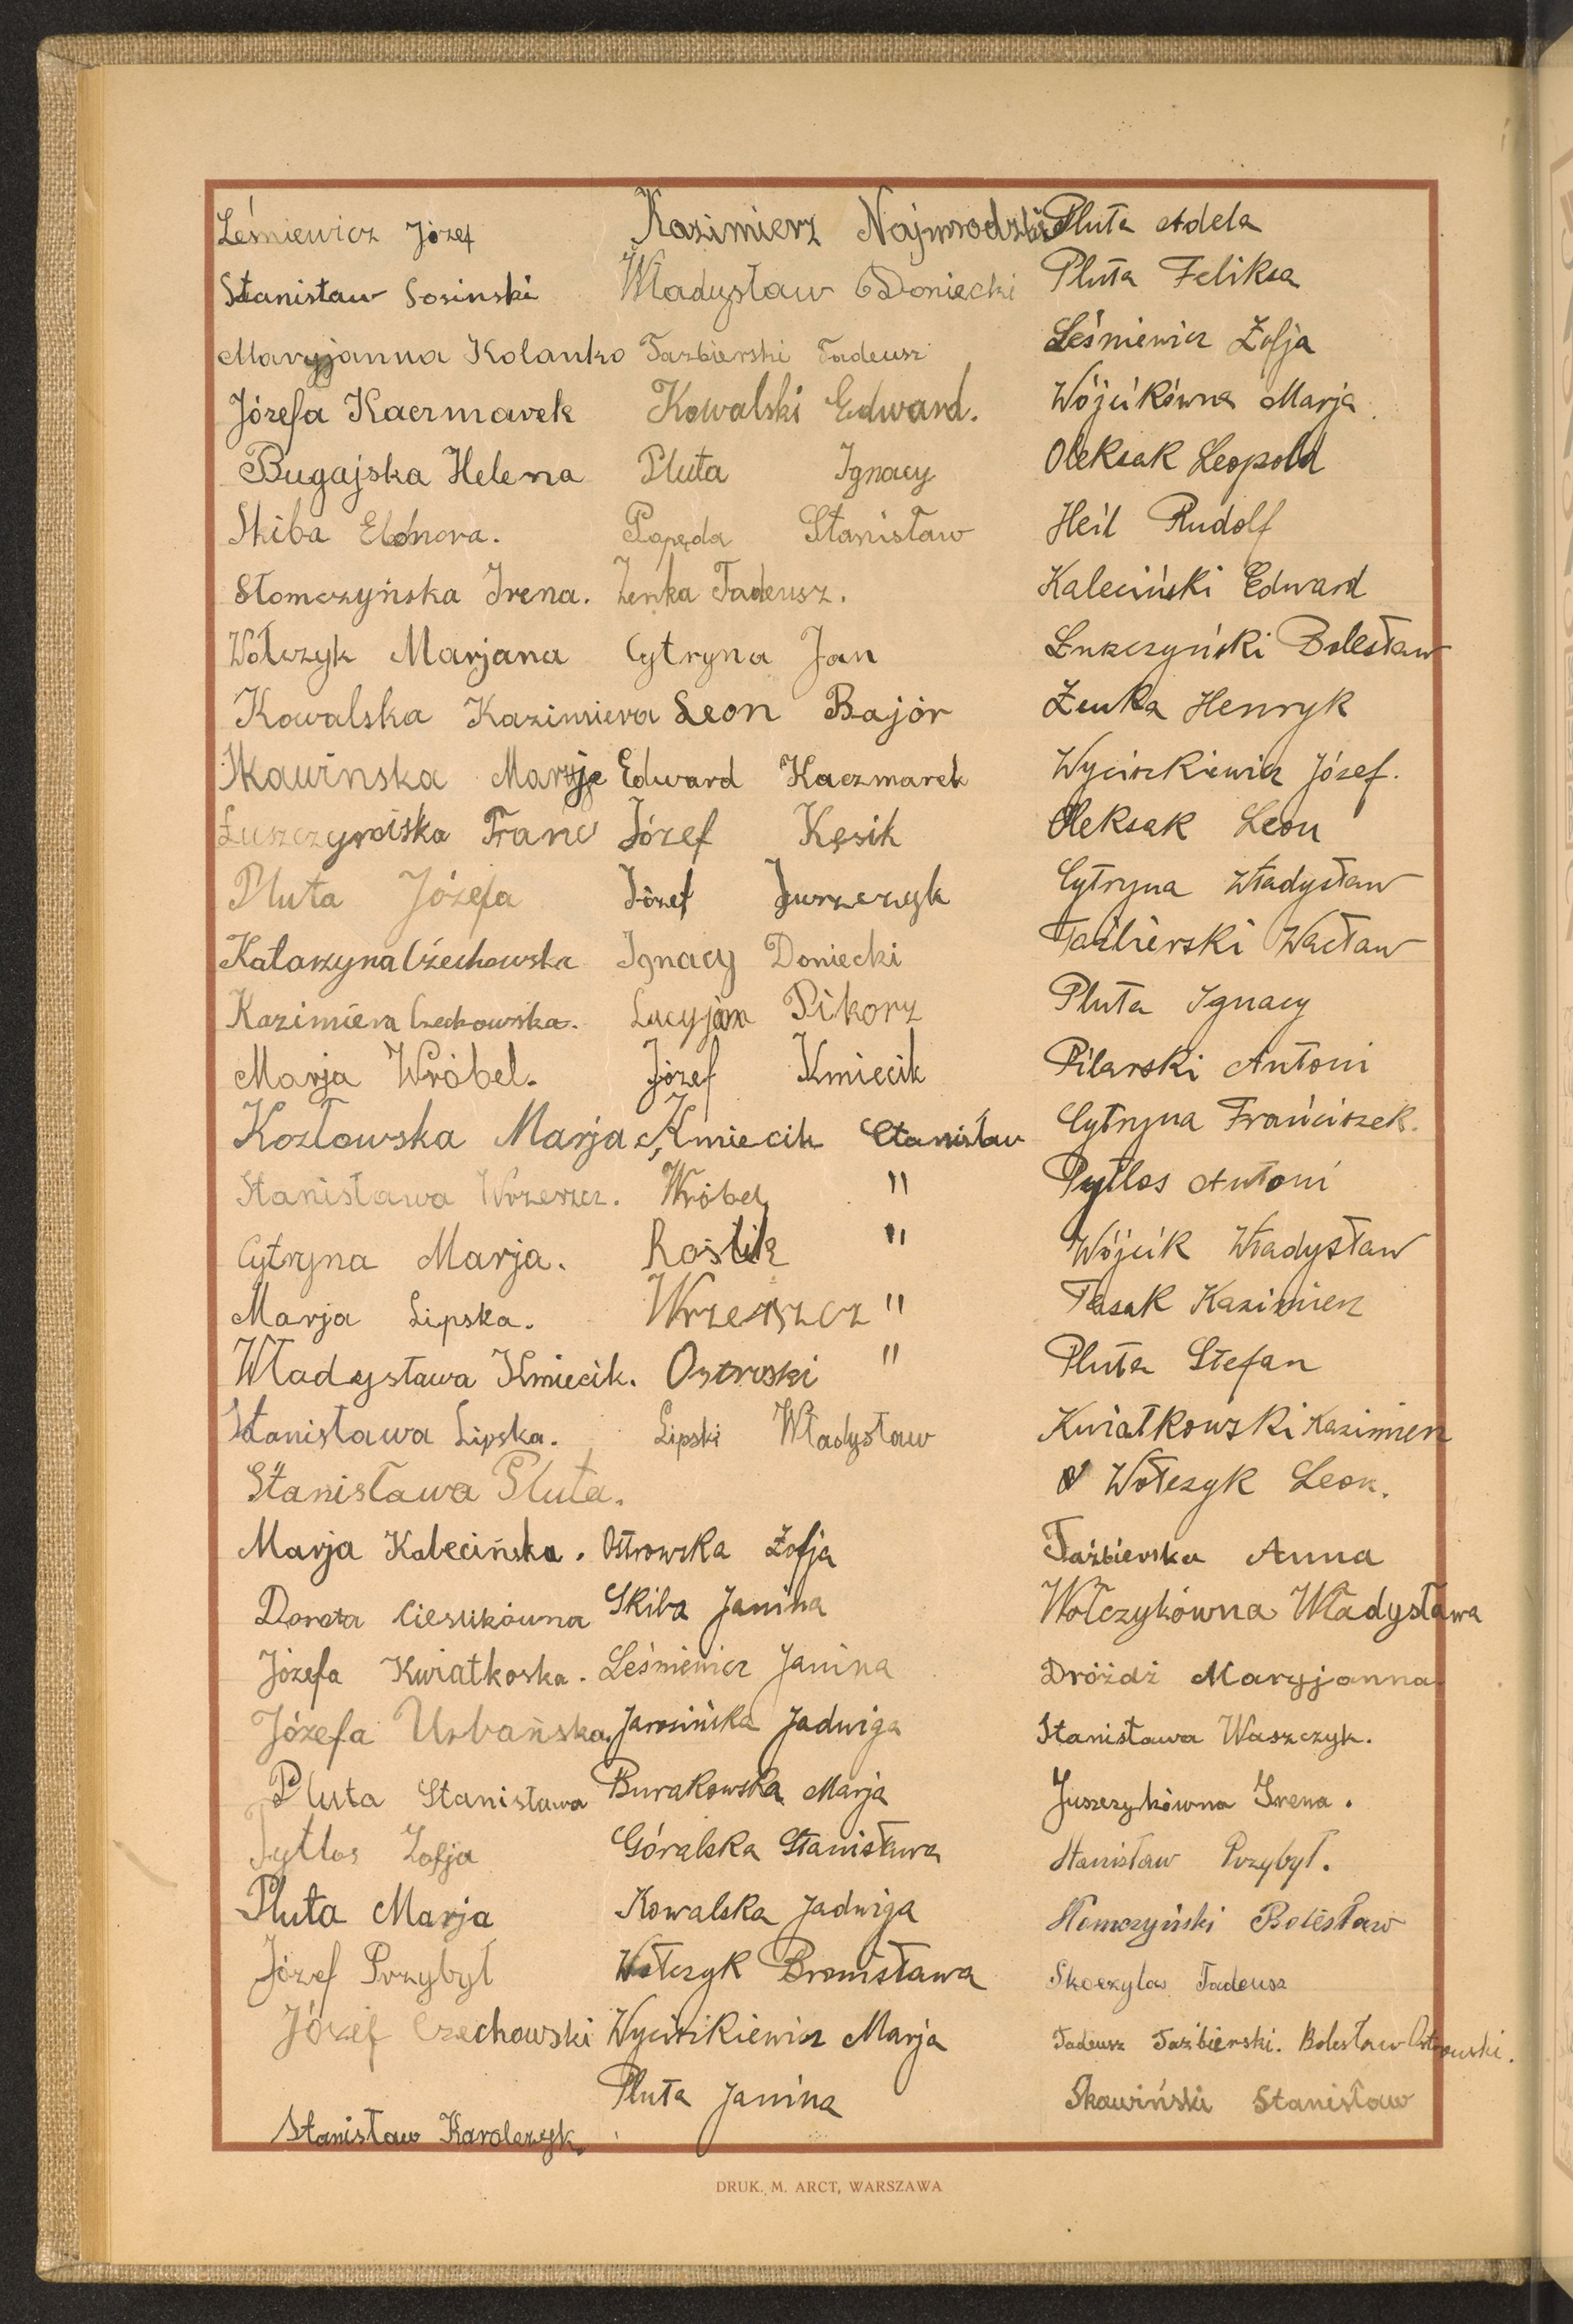 Leśniewicz Józef
Stanisław Sosinski
Maryjanna Kolanko
Józefa Kaczmarek
Bugajska Helena
Skiba Eleonora.
Słomczyńska Irena.
Wołczyk Marjana
Kowalska Kazimiera
Skawinska Marja
Łuszczyńska Franc
Pluta Józefa
Katarzyna Czechowska
Kazimiera Czechowska.
Marja Wróbel.
Kozłowska Marja
Stanisława Wrzeszcz.
Cytryna Marja.
Marja Lipska.
Władysława Kmiecik.
Stanisława Lipska.
Stanisława Pluta.
Marja Kalecińska.
Dorota Ciesukówna
Józefa Kwiatkoska.
Józefa Urbańska
Pluta Stanisława
Pytlos Zofja
Pluta Marja
Józef Przybył
Józef Czechowski
Stanisław Karolczyk.
Kazimierz Najmrodzki
Władysław Doniecki
Tarbierski Tadeusz
Kowalski Edward.
Pluta Ignacy
Papęda Stanisław
Zenka Tadeusz.
Cytryna Jan
Leon Bajór
Edward Kaczmarek
Józef Kęsik
Józef Juszczyk
Ignacy Doniecki
Lucyjan Pikorz
Józef Kmiecik
Kmiecik Stanisław
Wróbel "
Roślik "
Wrzeszcz "
Ostroski "
Lipski Władysław
Ostrowska Zofja
Skiba Janina
Leśniewicz Janina
Jarosińska Jadwiga
Burakowska Marja
Góralska Stanisława
Kowalska Jadwiga
Wołczyk Bronisława
Wyciszkiewicz Marja
Pluta Janina
Pluta Adela
Pluta Feliksa
Leśniewicz Zofja
Wójcikówna Marja.
Oleksak Leopold
Heil Rudolf
Kaleciński Edward
Łuszczyński Bolesław
Zenka Henryk
Wyciszkiewicz Józef.
Oleksak Leon
Cytryna Władysław
Taźbierski Wacław
Pluta Ignacy
Pilarski Antoni
Cytryna Franciszek.
Pytlos Antoni
Wójcik Władysław
Tasak Kazimierz
Pluta Stefan
Kwiatkowski Kazimierz
Wołczyk Leon.
Taźbierska Anna
Wołczykówna Władysława
Dróżdż Maryjanna
Stanisława Waszczyk.
Juszczykówna Irena.
Stanisław Przybył.
Słomczyński Bolesław
Skoczylas Tadeusz
Tadeusz Taźbierski. Bolesław Ostrowski.
Skawiński Stanisław
DRUK. M. ARCT, WARSZAWA